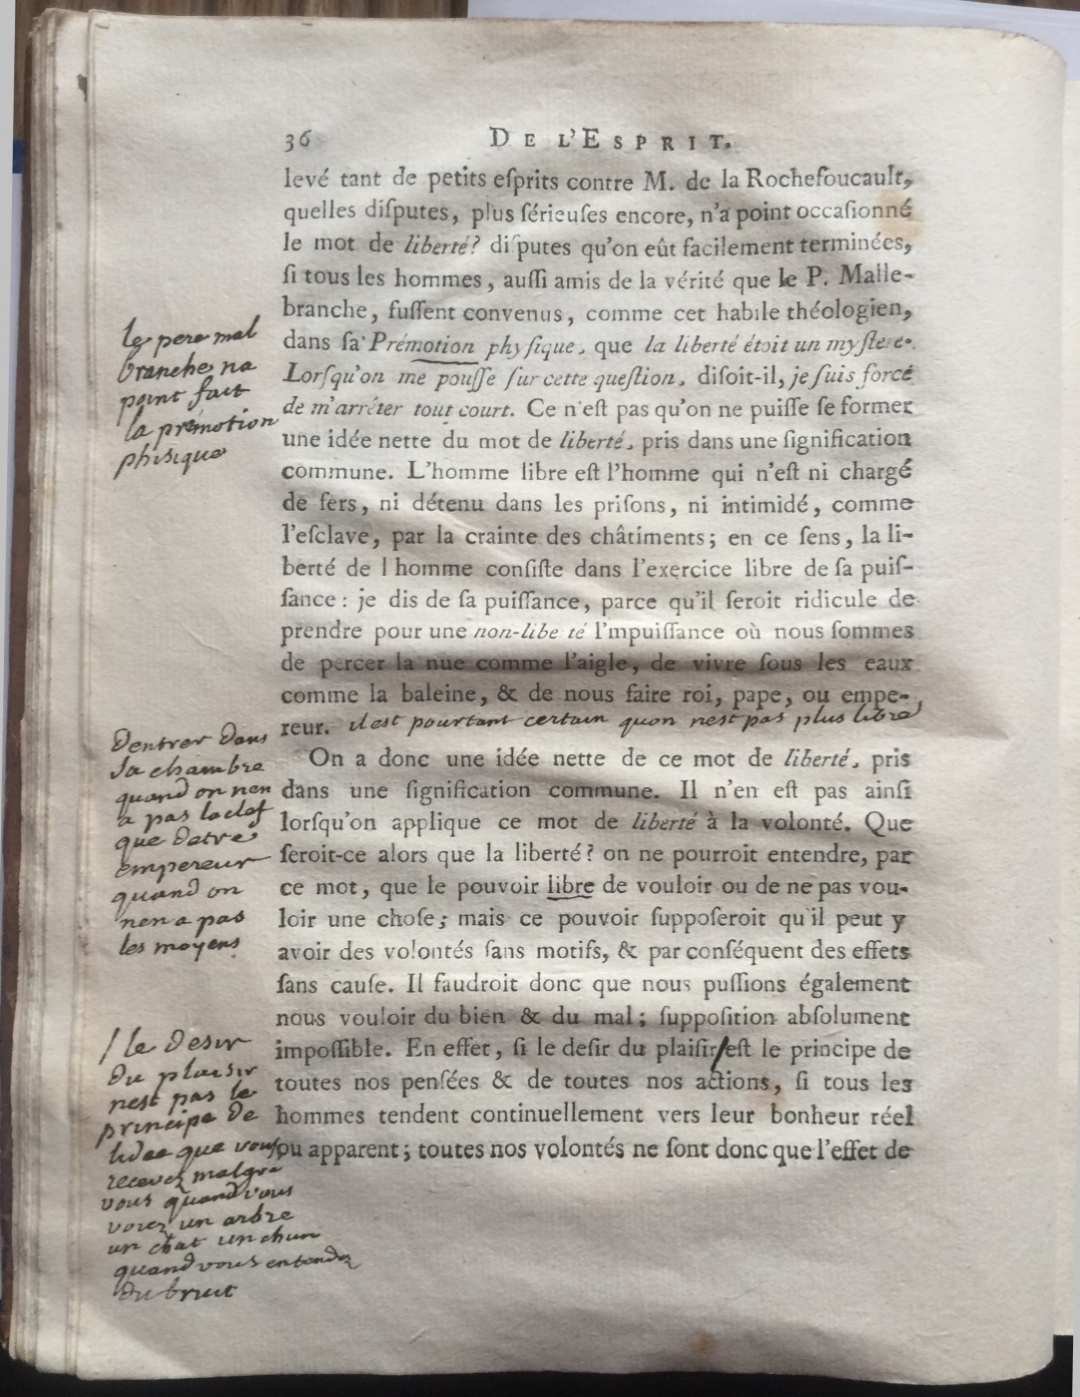 36 DE L'ESPRIT.
levé tant de petits eſprits contre M. de la Rochefoucault,
quelles diſputes, plus ſérieuſes encore, n'a point occaſionné
le mot de liberté? diſputes qu'on eût facilement terminées,
ſi tous les hommes, auſſi amis de la vérité que le P. Malle-
branche, fuſſent convenus, comme cet habile théologien,
dans ſa Prémotion phyſique, que la liberté étoit un myſtere.
Lorſqu'on me pouſſe ſur cette queſtion, diſoit-il, je ſuis forcé
de m'arrêter tout court. Ce n'eſt pas qu'on ne puiſſe ſe former
une idée nette du mot de liberté, pris dans une ſignification
commune. L'homme libre eſt l'homme qui n'eſt ni chargé
de fers, ni détenu dans les priſons, ni intimidé, comme
l'eſclave, par la crainte des châtiments; en ce ſens, la li-
berté de l homme conſiſte dans l'exercice libre de ſa puiſ-
ſance: je dis de ſa puiſſance, parce qu'il ſeroit ridicule de
prendre pour une non-libe té l'mpuiſſance où nous ſommes
de percer la nue comme l'aigle, de vivre ſous les eaux
comme la baleine, & de nous faire roi, pape, ou empe-
reur. il est pourtant certain quon nest pas plus libre
On a donc une idée nette de ce mot de liberté, pris
dans une ſignification commune. Il n'en eſt pas ainſi
lorſqu'on applique ce mot de liberté à la volonté. Que
ſeroit-ce alors que la liberté? on ne pourroit entendre, par
ce mot, que le pouvoir libre de vouloir ou de ne pas vou-
loir une choſe; mais ce pouvoir ſuppoſeroit qu'il peut y
avoir des volontés ſans motifs, & par conſéquent des effets
ſans cauſe. Il faudroit donc que nous puſſions également
nous vouloir du bien & du mal; ſuppoſition abſolument
impoſſible. En effet, ſi le deſir du plaiſir/eſt le principe de
toutes nos penſées & de toutes nos actions, ſi tous les
hommes tendent continuellement vers leur bonheur réel
ou apparent; toutes nos volontés ne ſont donc que l'effet de
le pere mal
branche na
point fait
la prémotion
phisique
dentrer dans
sa chambre
quand on nen
a pas la clef
que detre
empereur
quand on
nen a pas
les moyens
/ le desir
du plaisir
nest pas le
principe de
lidee que vous
recevez malgre
vous quand vous
voiez un arbre
un chat un chien
quand vous entendez
du bruit